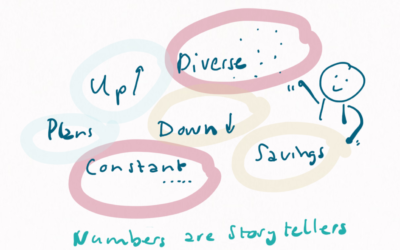 Diverse
Up↑
Plans
Down↓
Constant
Savings
Numbers are Storytellers